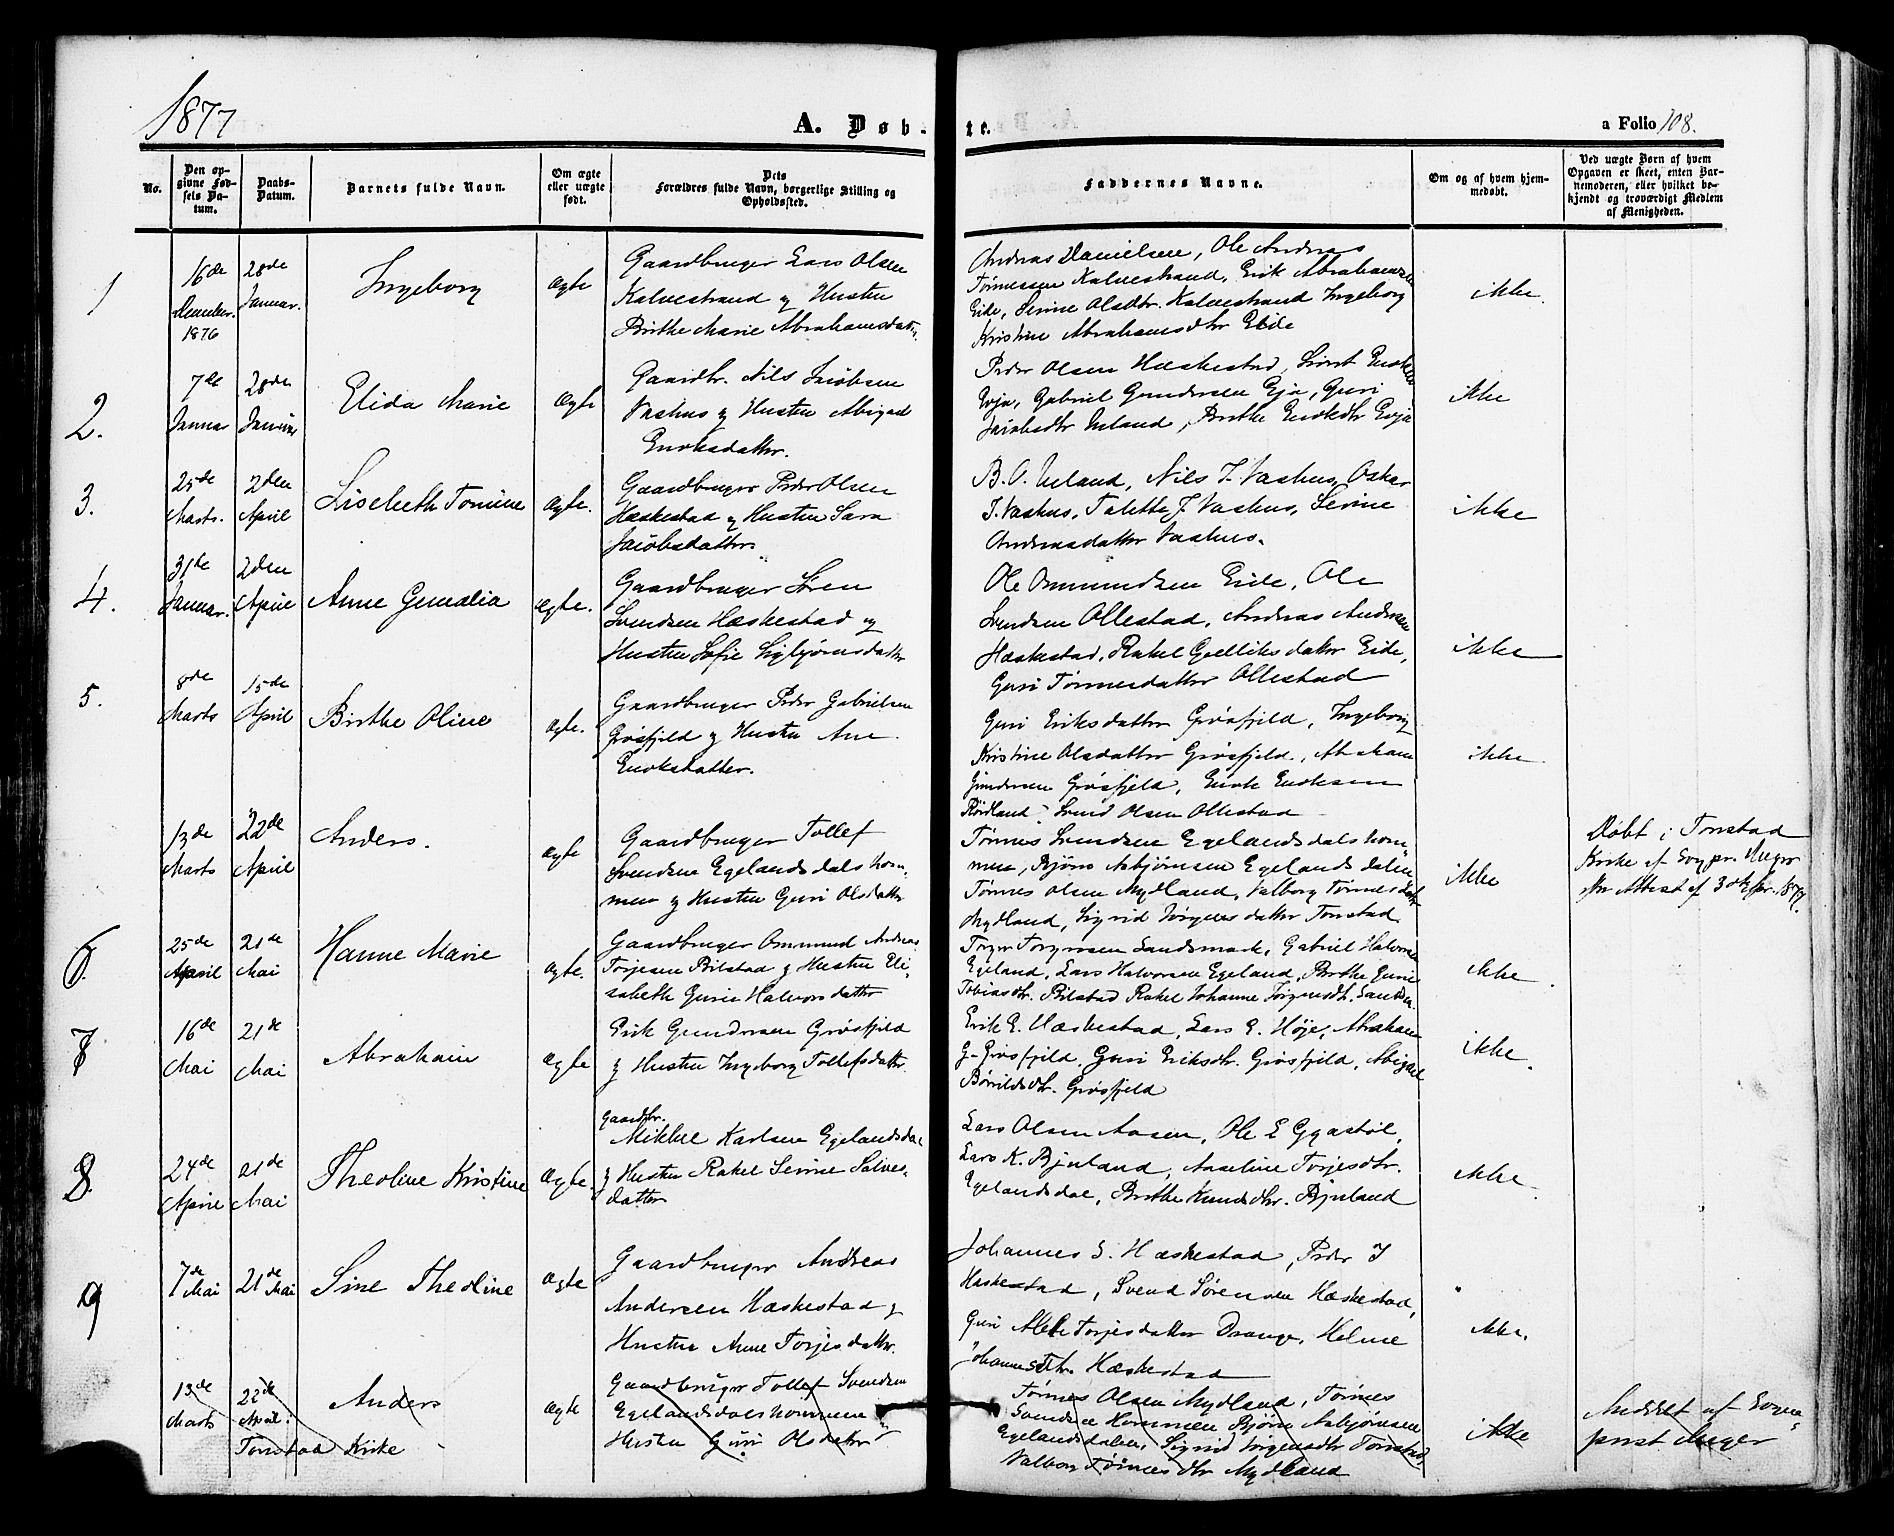 1877
A. Døb-
te.
a Folio 108.
No.
Den op-
givne Fød-
sels Da-
tum.
Daabs-
Datum.
Barnets fulde Navn.
Om ægte
eller uægte
født.
Dets
Forældres fulde Navn, borgerlige Stilling og
Opholdssted.
Faddernes Navne.
Om og af hvem hjem-
medøbt.
Ved uægte Børn af hvem
Opgaven er skeet, enten Bar-
nemoderen, eller hvilket be-
kjendt og troværdigt Medlem
af Menigheden.
1
16de
December
1876
28de
Januar.
Ingeborg
Ægte
Gaardbruger Lars Olsen
Kalvestrand og Hustru
Birthe Marie Abrahamsdatr.
Andreas Danielsen, Ole Andreas
Tønnessen Kalvestrand, Erik Abrahamsen
Eide, Serine Olsdtr. Kalvestrand Ingeborg
Kristine Abrahamsdtr Eide
ikke.
2.
7de
Januar
28de
Januar
Elida Marie
Ægte
Gaardbr. Nils Jacobsen
Vashus og Hustru Abigael
Enoksdatter.
Peder Olsen Hæskestad, Sivert Enoksen
Evja, Gabriel Gundersen Eja, Guri
Jacobsdtr Ueland, Birthe Enoksdtr Evja
ikke
3.
25de
Marts.
2den
April
Lisebeth Tomine
Ægte.
Gaardbruger Peder Olsen
Hæskestad og Hustru Sara
Jacobsdatter.
B. O. Ueland, Nils J. Vashus, Oskar
J. Vashus, Talette J. Vashus, Serine
Andreasdatter Vashus.
ikke
4.
31de
Januar.
2den
April
Anne Gemalia
Ægte.
Gaardbruger Søren
Svendsen Hæskestad og
Hustru Sofie Sigbjørnsdatter
Ole Ommundsen Eide, Ole
Svendsen Ollestad, Andreas Andersen
Hæskestad, Rakel Goelliksdatter Eide,
Guri Tønnesdatter Ollestad
ikke
5.
8de
Marts
15de
April
Birthe Oline
Ægte.
Gaardbruger Peder Gabrielsen
Grøsfjeld og Hustru Ane
Enoksdatter.
Guri Eriksdatter Grøsfjeld, Ingeborg
Kristine Olsdatter Grøsfjeld, Abraham
Gundersen Grøsfjeld, Enok Enoksen
Rørdland, Svend Olsen Ollestad
ikke
13de
Marts
22de
April
Anders.
Ægte
Gaardbruger Tollef
Svendsen Egelandsdalshom-
men og Hustru Guri Olsdatter
Tønnes Svendsen Egelandsdalshom-
men, Bjørn Asbjørnsen Egelandsdalen
Tønnes Olsen Mydland, Valborg Tønnesdatr
Mydland, Sigrid Jørgensdatter Tonstad.
ikke
Døbt i Tonstad
Kirke af Sogpr. Meyer
Attest af 3 1877.
6.
25de
April
21de
Mai
Hanne Marie
Ægte.
Gaardbruger Ommund Andreas
Torjesen Bilstad og Hustru Eli-
sabeth Gurie Halvorsdatter
Torger Torgersen Sandsmark, Gabriel Halvorsen
Egeland, Lars Halvorsen Egeland, Birthe Gurie
Tobiasdtr. Bilstad Rakel Johanne Jørgensdtr.
ikke.
7
16de
Mai
21de
Mai
Abraham
Ægte
Erik Gundersen Grøsfjeld
og Hustru Ingeborg Tollefsdatter.
Erik E. Hæskestad, Lars E. Høje, Abraham
G. Grøsfjeld, Guri Eriksdtr. Grøsfjeld, Abigael
Børildsdtr. Grøsfjeld
ikke.
8.
24de
April
21de
Mai
Theoline Kristine
Ægte.
Gaardbr.
Mikkel Karlsen Egelandsdal
og Hustru Rakel Serine Salves-
datter
Lars Olsen Aasen, Ole E Eggestøl,
Lars K. Bjuland, Anseline Torjesdtr.
Egelandsdal, Birthe Knudsdtr. Bjuland
ikke.
9
7de
Mai
21de
Mai
Sine Theoline
Ægte
Gaardbruger Andreas
Andersen Hæskestad og
Hustru Anne Torjesdatter.
Johannes S. Hæskestad, Peder J
Hæskestad, Svend Sørensen Hæskestad,
Guri Alette Torjesdatter Drange, Helene
Johannesdtr. Hæskestad
ikke.
13de
Marts
22de
April.
Tonstad Kirke
Anders
Ægte
Gaardbruger Tollef Svendsen
Egelandsdalshommen og
Hustru Guri Olsdatter
Tønnes Olsen Mydland, Tønnes
Svendsen Hommen Bjørn Asbjørnsen
Egelandsdalen, Sigrid Jørgensdtr Tonstad,
Valborg Tønnesdtr Mydland
ikke
Meddelt af Sogne-
prest Meyer